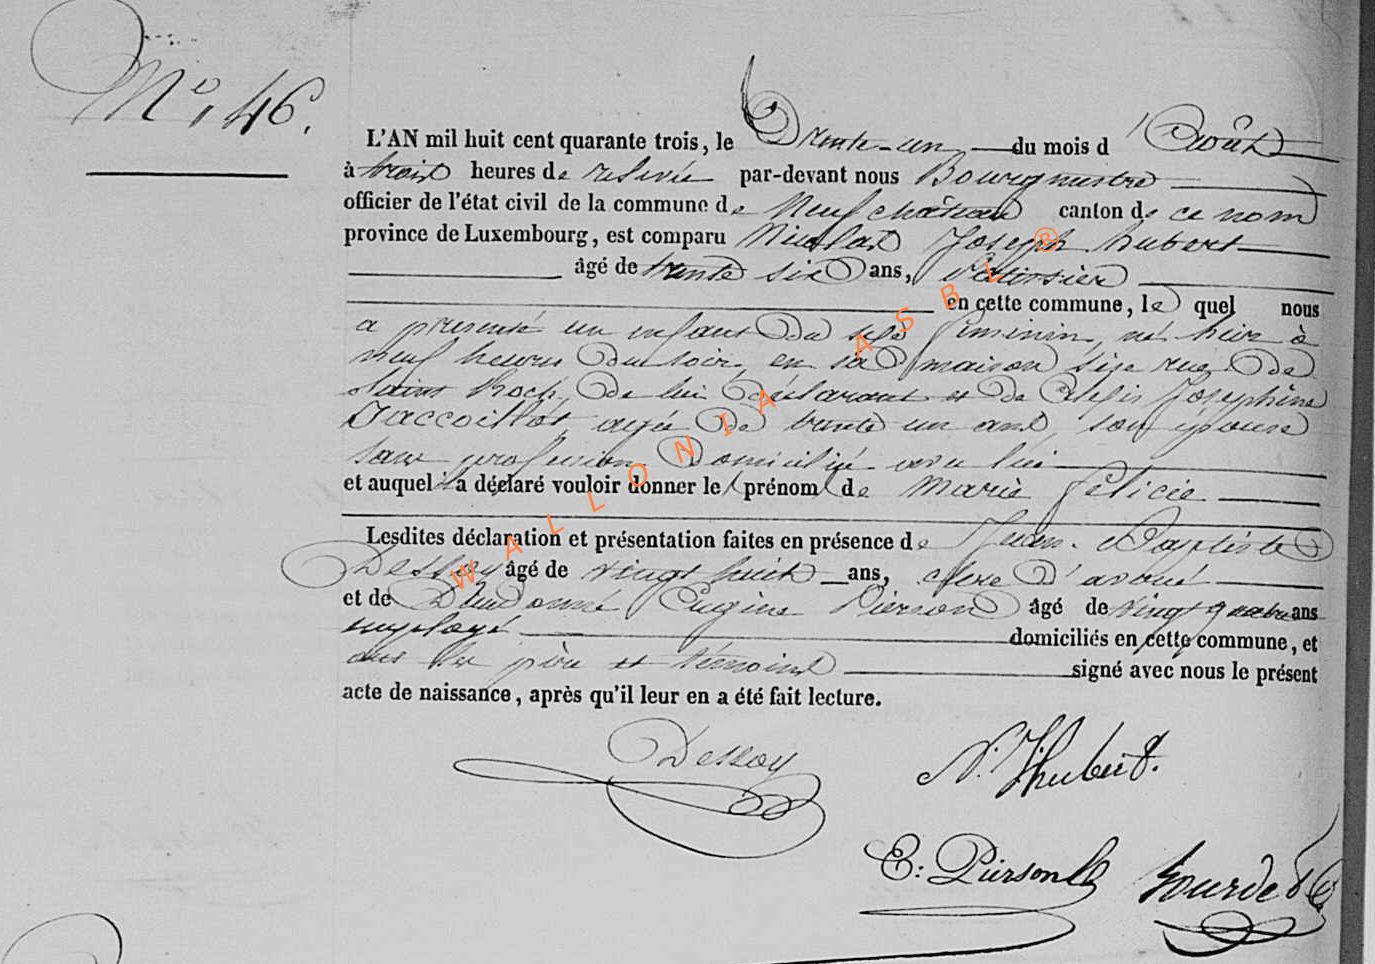 N° 46.
L'AN mil huit cent quarante trois, le Trente-un du mois d'Août
à trois heures de relevée par-devant nous Bourgmestre
officier de l'état civil de la commune de Neufchâteau canton de ce nom
province de Luxembourg, est comparu Nicolas Joseph hubert
âgé de trente six ans, Patissier
en cette commune, le quel nous
a presenté un enfant du sexe feminin, né hier à
neuf heures du soir, en sa maison sise rue de
Saint Roch, de lui déclarant et de Josephine
Jaccoillot, agée de trente un ans, son epouse
sans profession, Domicilié avec lui
et auquel il a déclaré vouloir donner le prénom de Marie felicie
Lesdites déclaration et présentation faites en présence de Jean-Baptiste
Dessoy âgé de vingt huit ans, clerc d'avoué
et de Dieudonné Eugène Pierson âgé de vingt quatre ans
employé domiciliés en cette commune, et
ont les père et témoins signé avec nous le présent
acte de naissance, après qu'il leur en a été fait lecture.
Dessoy
N. J. hubert.
E: Pierson
WALLONIA ASBL ®